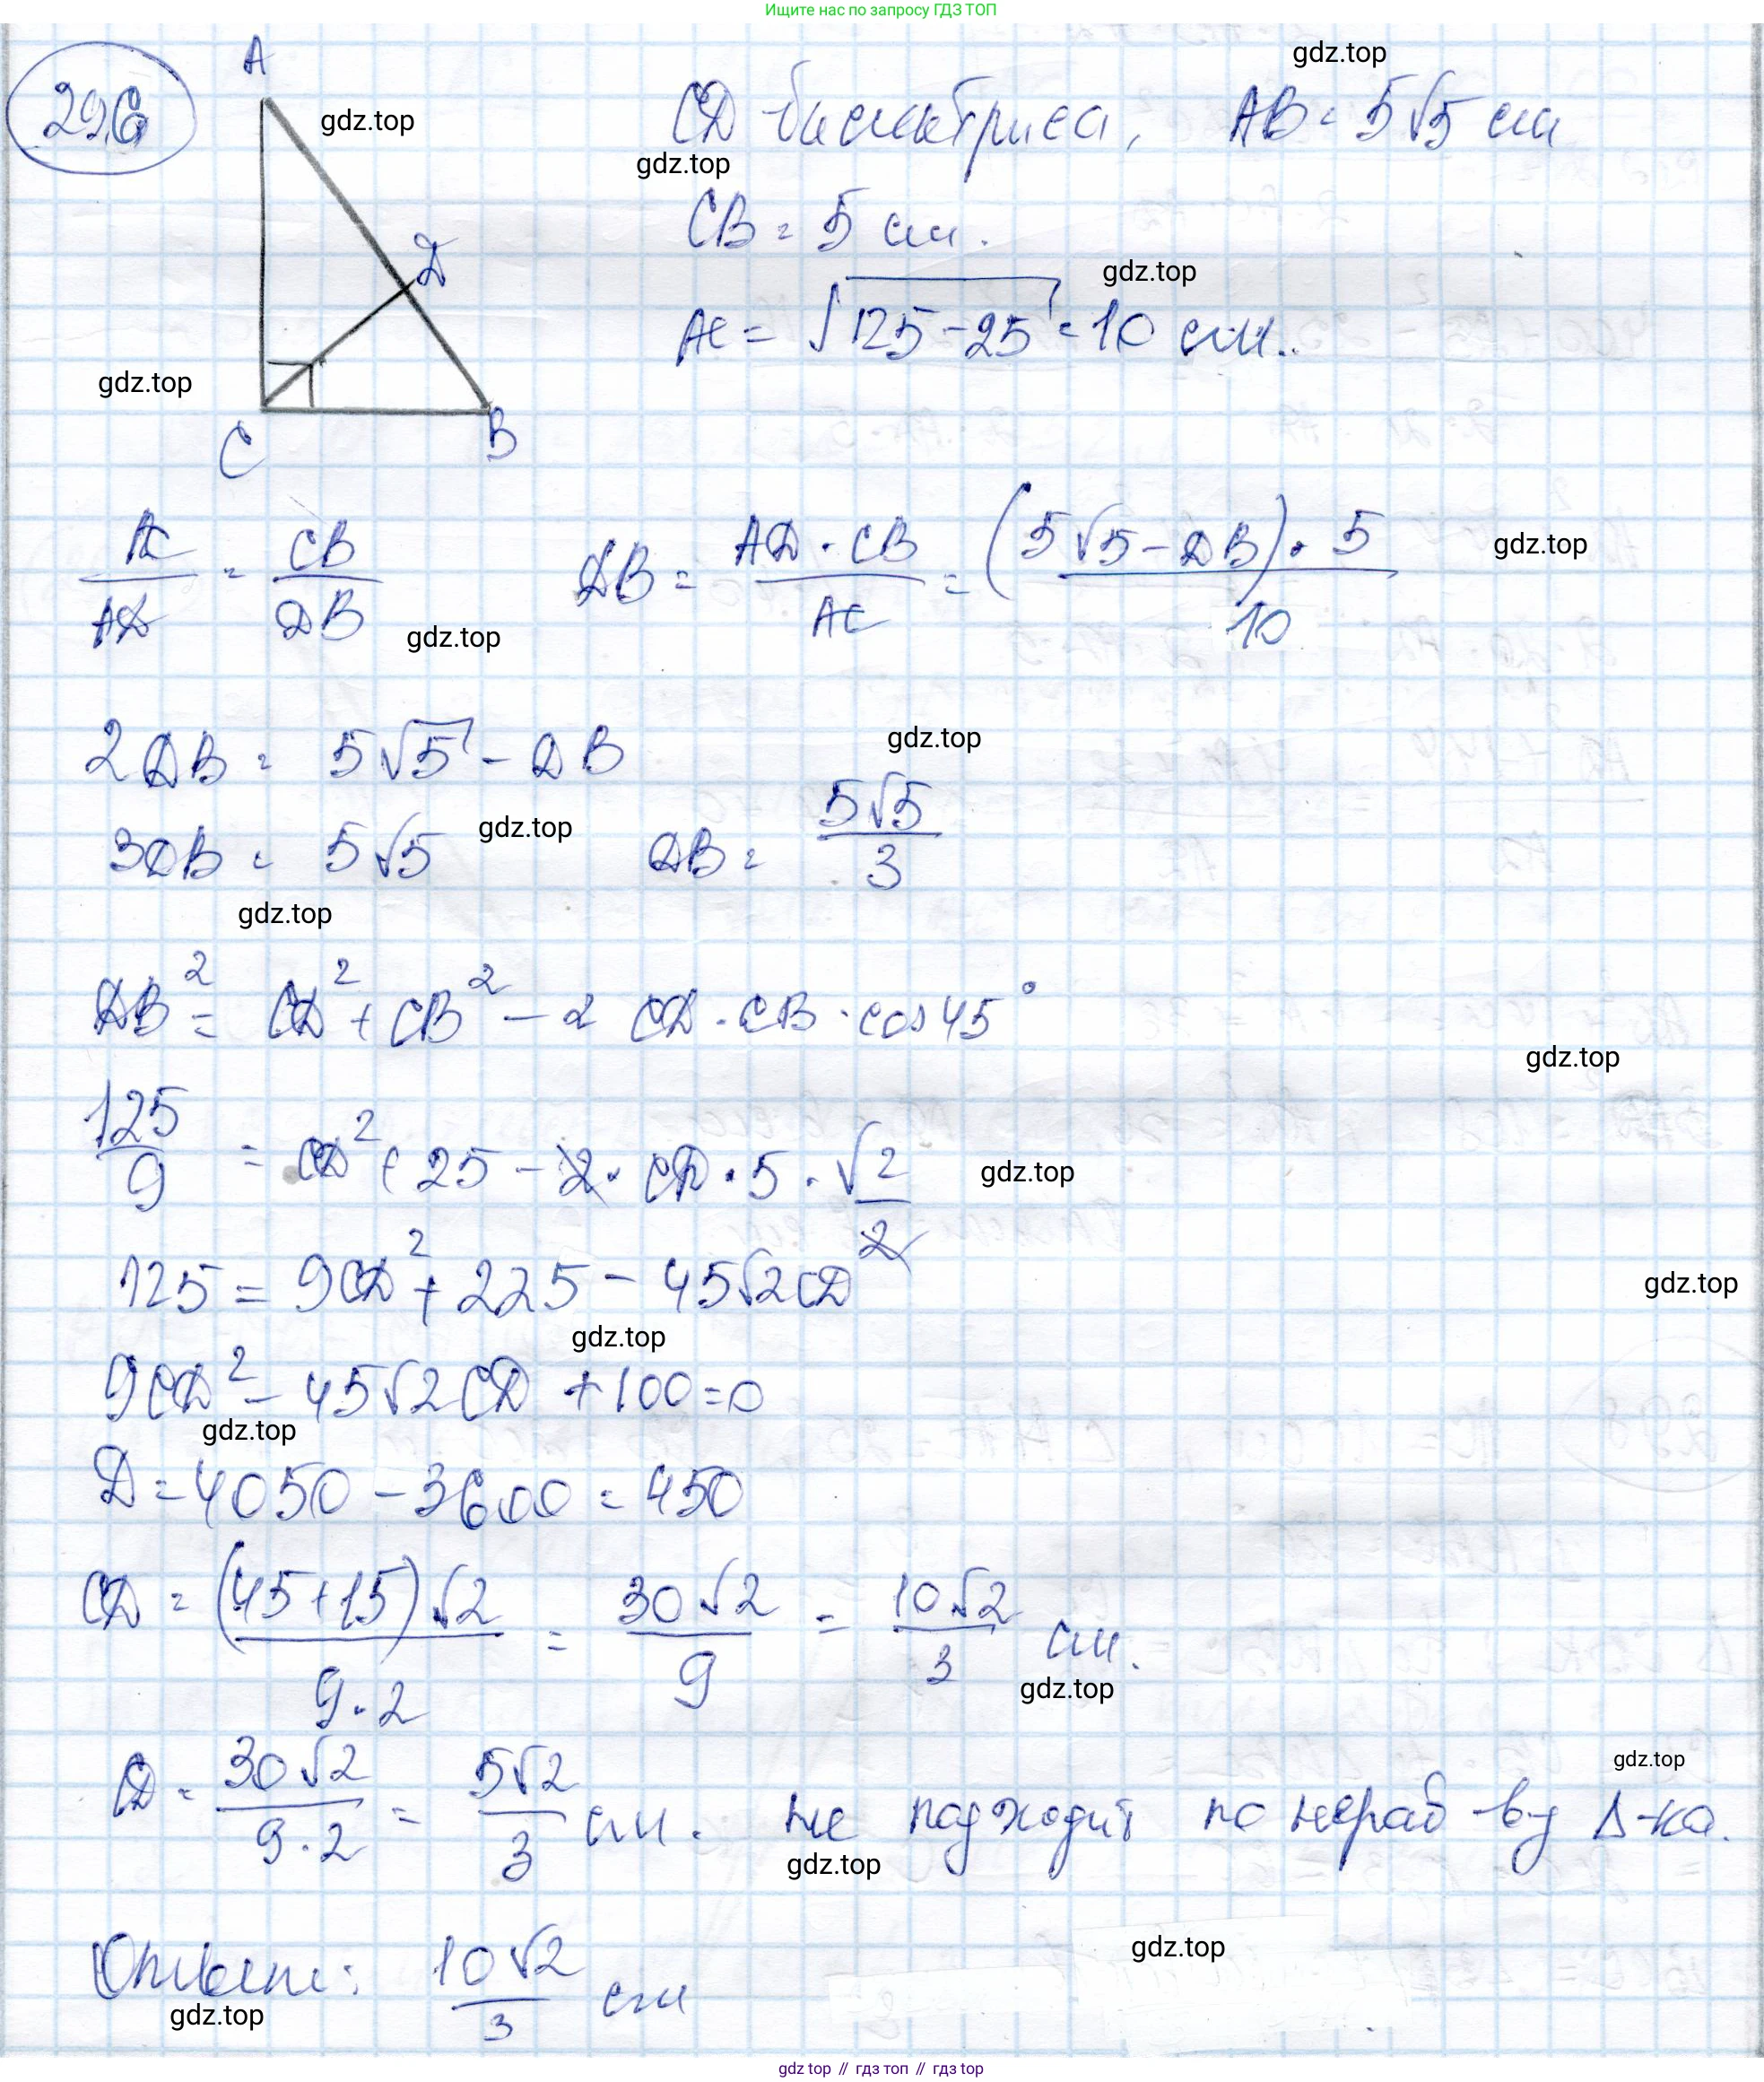 Ищите нас по запросу ГДЗ ТОП
296
A
D
C
B
gdz.top
CD - биссектриса, AB = 5√5 см
gdz.top
gdz.top
CB = 5 см.
gdz.top
AC = √125-25 = 10 см.
gdz.top
AC/AD = CB/DB DB = AD · CB/AC = (5√5 - DB) · 5/10
gdz.top
gdz.top
2DB = 5√5 - DB
gdz.top
3DB = 5√5 DB = 5√5/3
gdz.top
gdz.top
DB² = CD² + CB² - 2 CD · CB · cos 45°
gdz.top
125/9 = CD² + 25 - 2 · CD · 5 · √2/2
gdz.top
125 = 9CD² + 225 - 45√2CD
gdz.top
gdz.top
9CD² - 45√2CD + 100 = 0
gdz.top
D = 4050 - 3600 = 450
CD = (45+15)√2/9·2 = 30√2/9 = 10√2/3 см.
gdz.top
CD = 30√2/9·2 = 5√2/3 см. не подходит по нерав-ву Δ-ка.
gdz.top
gdz.top
Ответ: 10√2/3 см
gdz.top
gdz.top
gdz top // гдз топ // гдз top